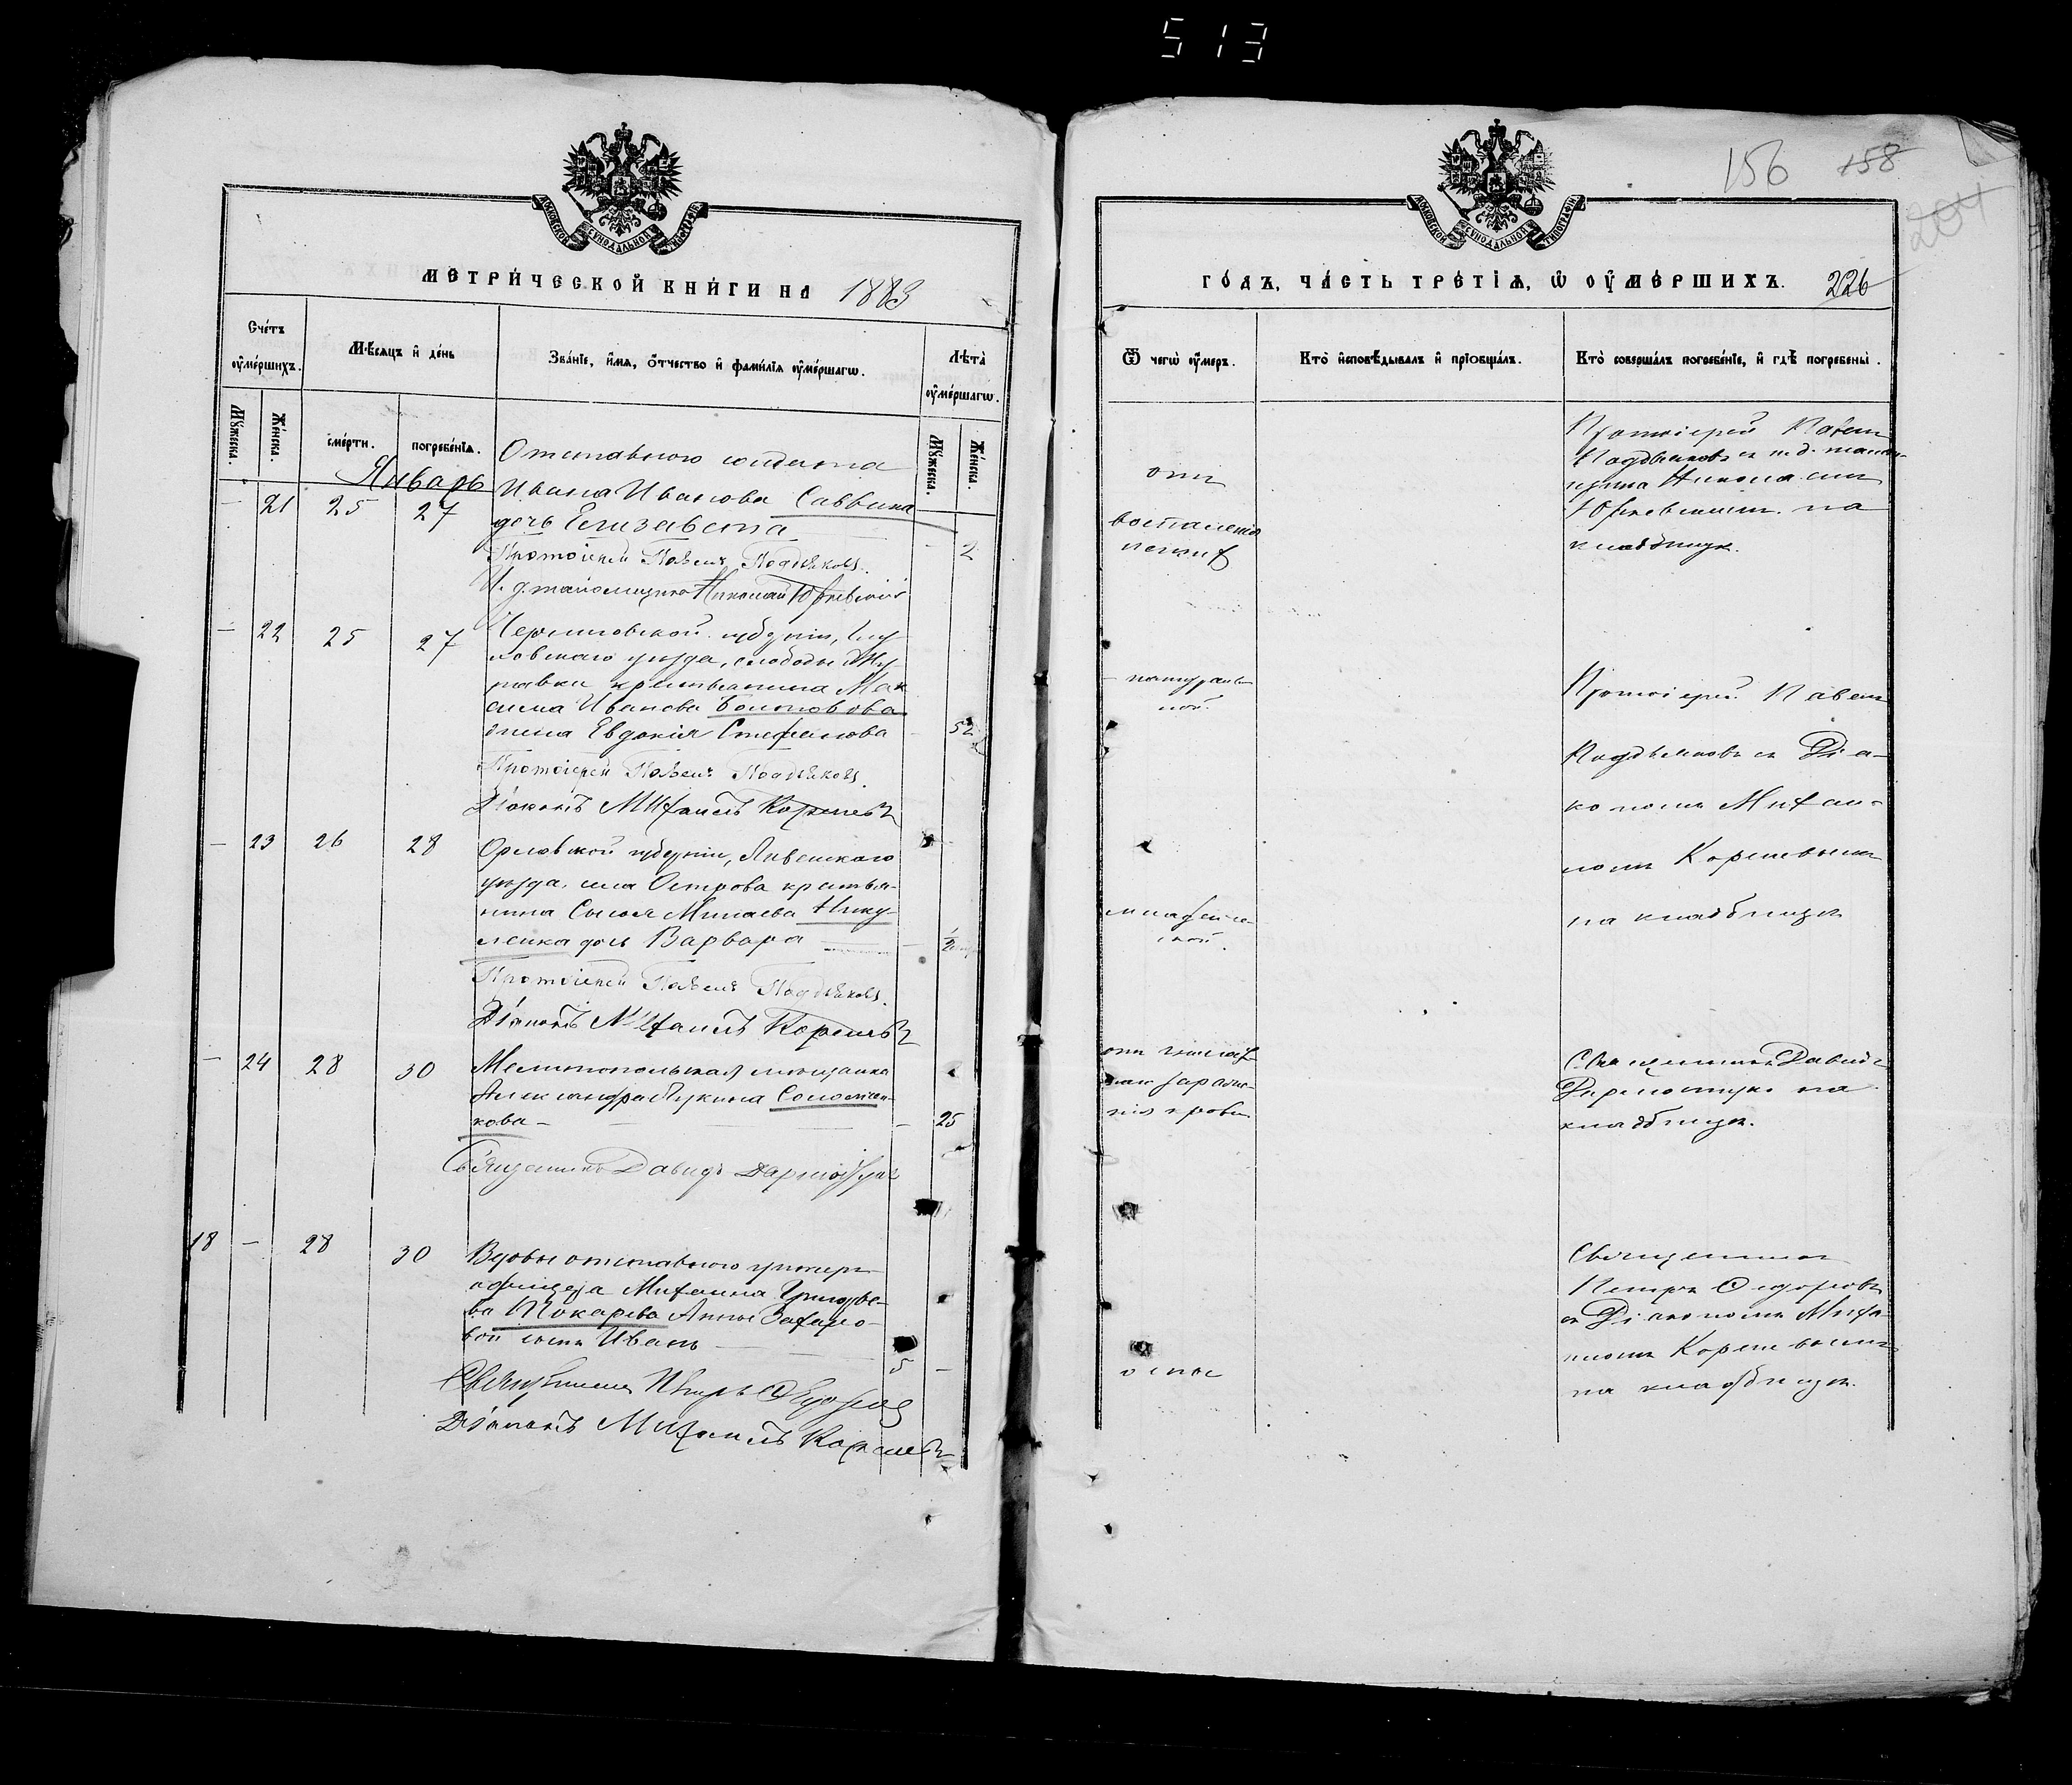 513
156 158
204
МОСКОВСКОЙ СУНОДАЛЬНОЙ ТИПОГРАФІИ
МОСКОВСКОЙ СУНОДАЛЬНОЙ ТИПОГРАФІИ
МЕТРИ́ЧЕСКОЙ КНИ́ГИ НА 1883
Сче́тъ ᲂу҆ме́ршихъ.
Мѣ́сяцъ и҆ де́нь
Зва́нїе, и҆́мя, ѻ҆́тчество и҆ фами́лїя ᲂу҆ме́ршагѡ.
Лѣта̀ ᲂу҆ме́ршагѡ.
Мꙋ́жеска.
Же́нска.
сме́рти.
погребе́нїѧ.
Мꙋ́жеска.
Же́нска.
Январь
Отставного солдата
— 21 25 27 Ивана Иванова Саввина
дочь Елизавета — 2
Протоіерей Павелъ Поддьяковъ.
И. д. псаломщика Николай Юрьевскій
— 22 25 27 Черниговской губерніи, Глу-
ховскаго уѣзда, слободы
крестьянина Мак-
сима Иванова
жена Евдокія Стефанова 52
Протоіерей Павелъ Поддьяковъ.
Діаконъ Михаилъ Кореневъ
— 23 26 28 Орловской губерніи, Ливенскаго
уѣзда, села Острова крестья-
нина Сысоя Минаева Нику-
дочь Варвара — — ½
Протоіерей Павелъ Поддьяковъ.
Діаконъ Михаилъ Кореневъ
— 24 28 30 Мелитопольская мѣщанка
Александра Лукина
кова — — — 25
Священникъ Давидъ
18 — 28 30 Вдовы отставного унтеръ
офицера Михаила Григорье-
ва Токарева Анны Захаро-
вой сынъ Иванъ — 5 —
Священникъ Петръ Ѳедоровъ
Діаконъ Михаилъ Кореневъ
ГО́ДЪ, ЧА́СТЬ ТРЕ́ТЇѦ, Ѡ҆ ОУ҆МЕ́РШИХЪ. 226
Ѿ чегѡ̀ ᲂу҆́меръ.
Кто̀ и҆сповѣ́дывалъ и҆ прїѡбща́лъ.
Кто̀ соверша́лъ погребе́нїе, и҆ гдѣ̀ погребены̀.
отъ
воспаленія
легкихъ
Протоіерей Павелъ
Поддьяковъ съ и. д. псалом-
щика Николаемъ
Юрьевскимъ на
кладбищѣ.
натураль-
ной
Протоіерей Павелъ
Поддьяковъ съ Діа-
кономъ Михаи-
ломъ Кореневымъ
на кладбищѣ
младенче-
ской.
отъ
зараже-
нія крови
Священникъ Давидъ
на
кладбищѣ.
оспы
Священникъ
Петръ Ѳедоровъ
съ Діакономъ Миха-
иломъ Кореневымъ
на кладбищѣ.